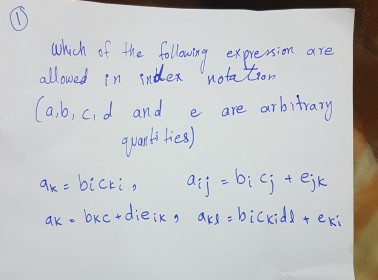 ①
Which of the following expression are
allowed in index notation
(a,b,c,d and e are arbitrary
quantities)
ak = bicki, aij = bicj + ejk
ak = bkc + dieik, akl = bickidl + eki